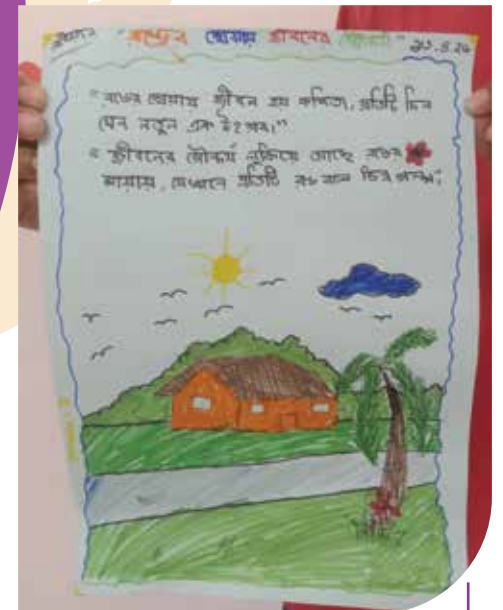 "রঙের ছোঁয়ায় জীবনের
"রঙের ছোঁয়ায় জীবন হয় কবিতা, প্রতিটি দিন
যেন নতুন এক উৎসব।"
"জীবনের সৌন্দর্য লুকিয়ে আছে রঙের
মায়ায়, যেখানে প্রতিটি রঙ বলে ভিন্ন গল্প;